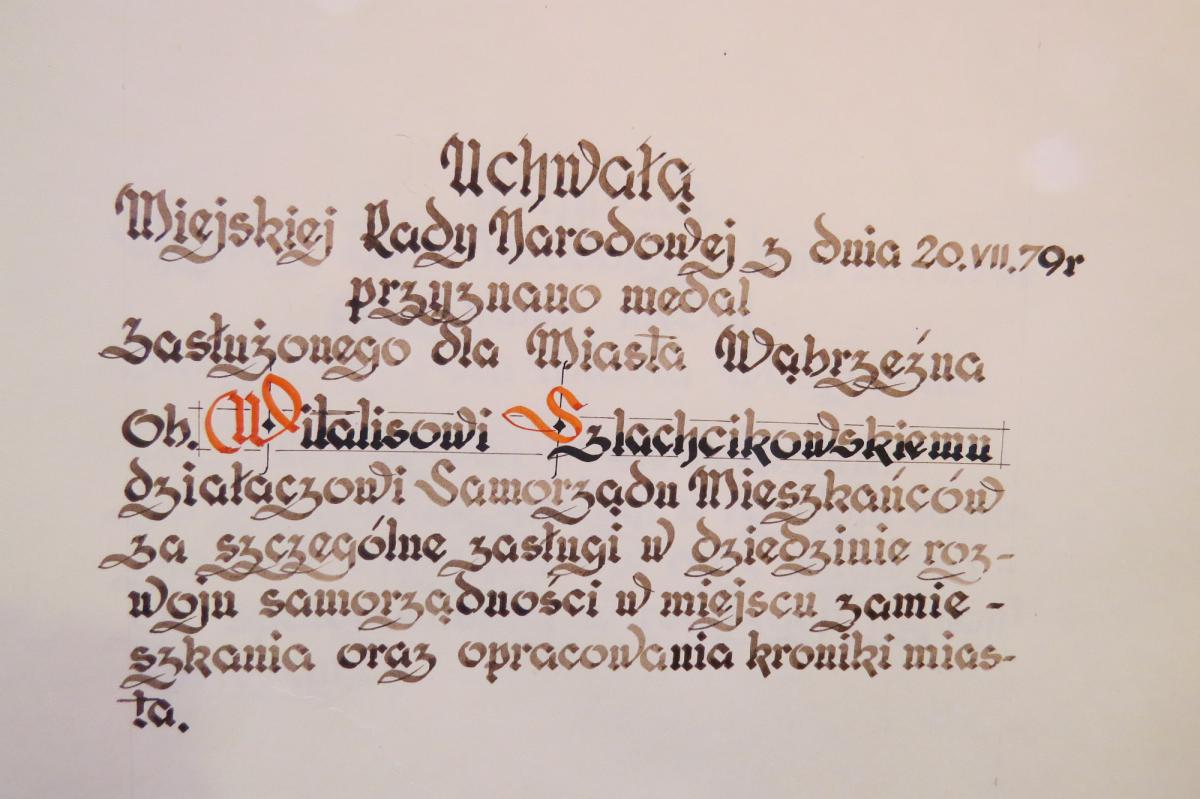 Uchwałą
Miejskiej Rady Narodowej z dnia 20.VII.79r
przyznano medal
Zasłużonego dla Miasta Wąbrzeźna
Ob. Witalisowi Szlachcikowskiemu
działaczowi Samorządu Mieszkańców
za szczególne zasługi w dziedzinie roz-
woju samorządności w miejscu zamie-
szkania oraz opracowania kroniki mias-
ta.